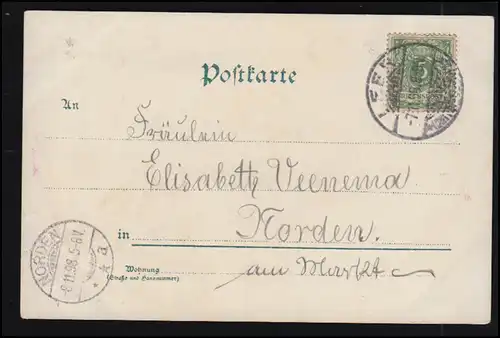 5
Postkarte
An
Fräulein
Elisabeth Veenema
in Norden.
Wohnung
(Straße und Hausnummer)
am Markt
NORDEN
8.11.98.5-6V.
* a